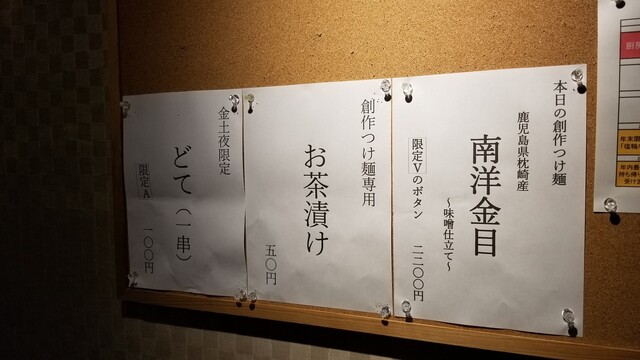 本日の創作つけ麺
鹿児島県枕崎産
南洋金目
～味噌仕立て～
限定Vのボタン 二二〇〇円
創作つけ麺専用
お茶漬け
五〇円
金土夜限定
どて（一串）
限定A 一〇〇円